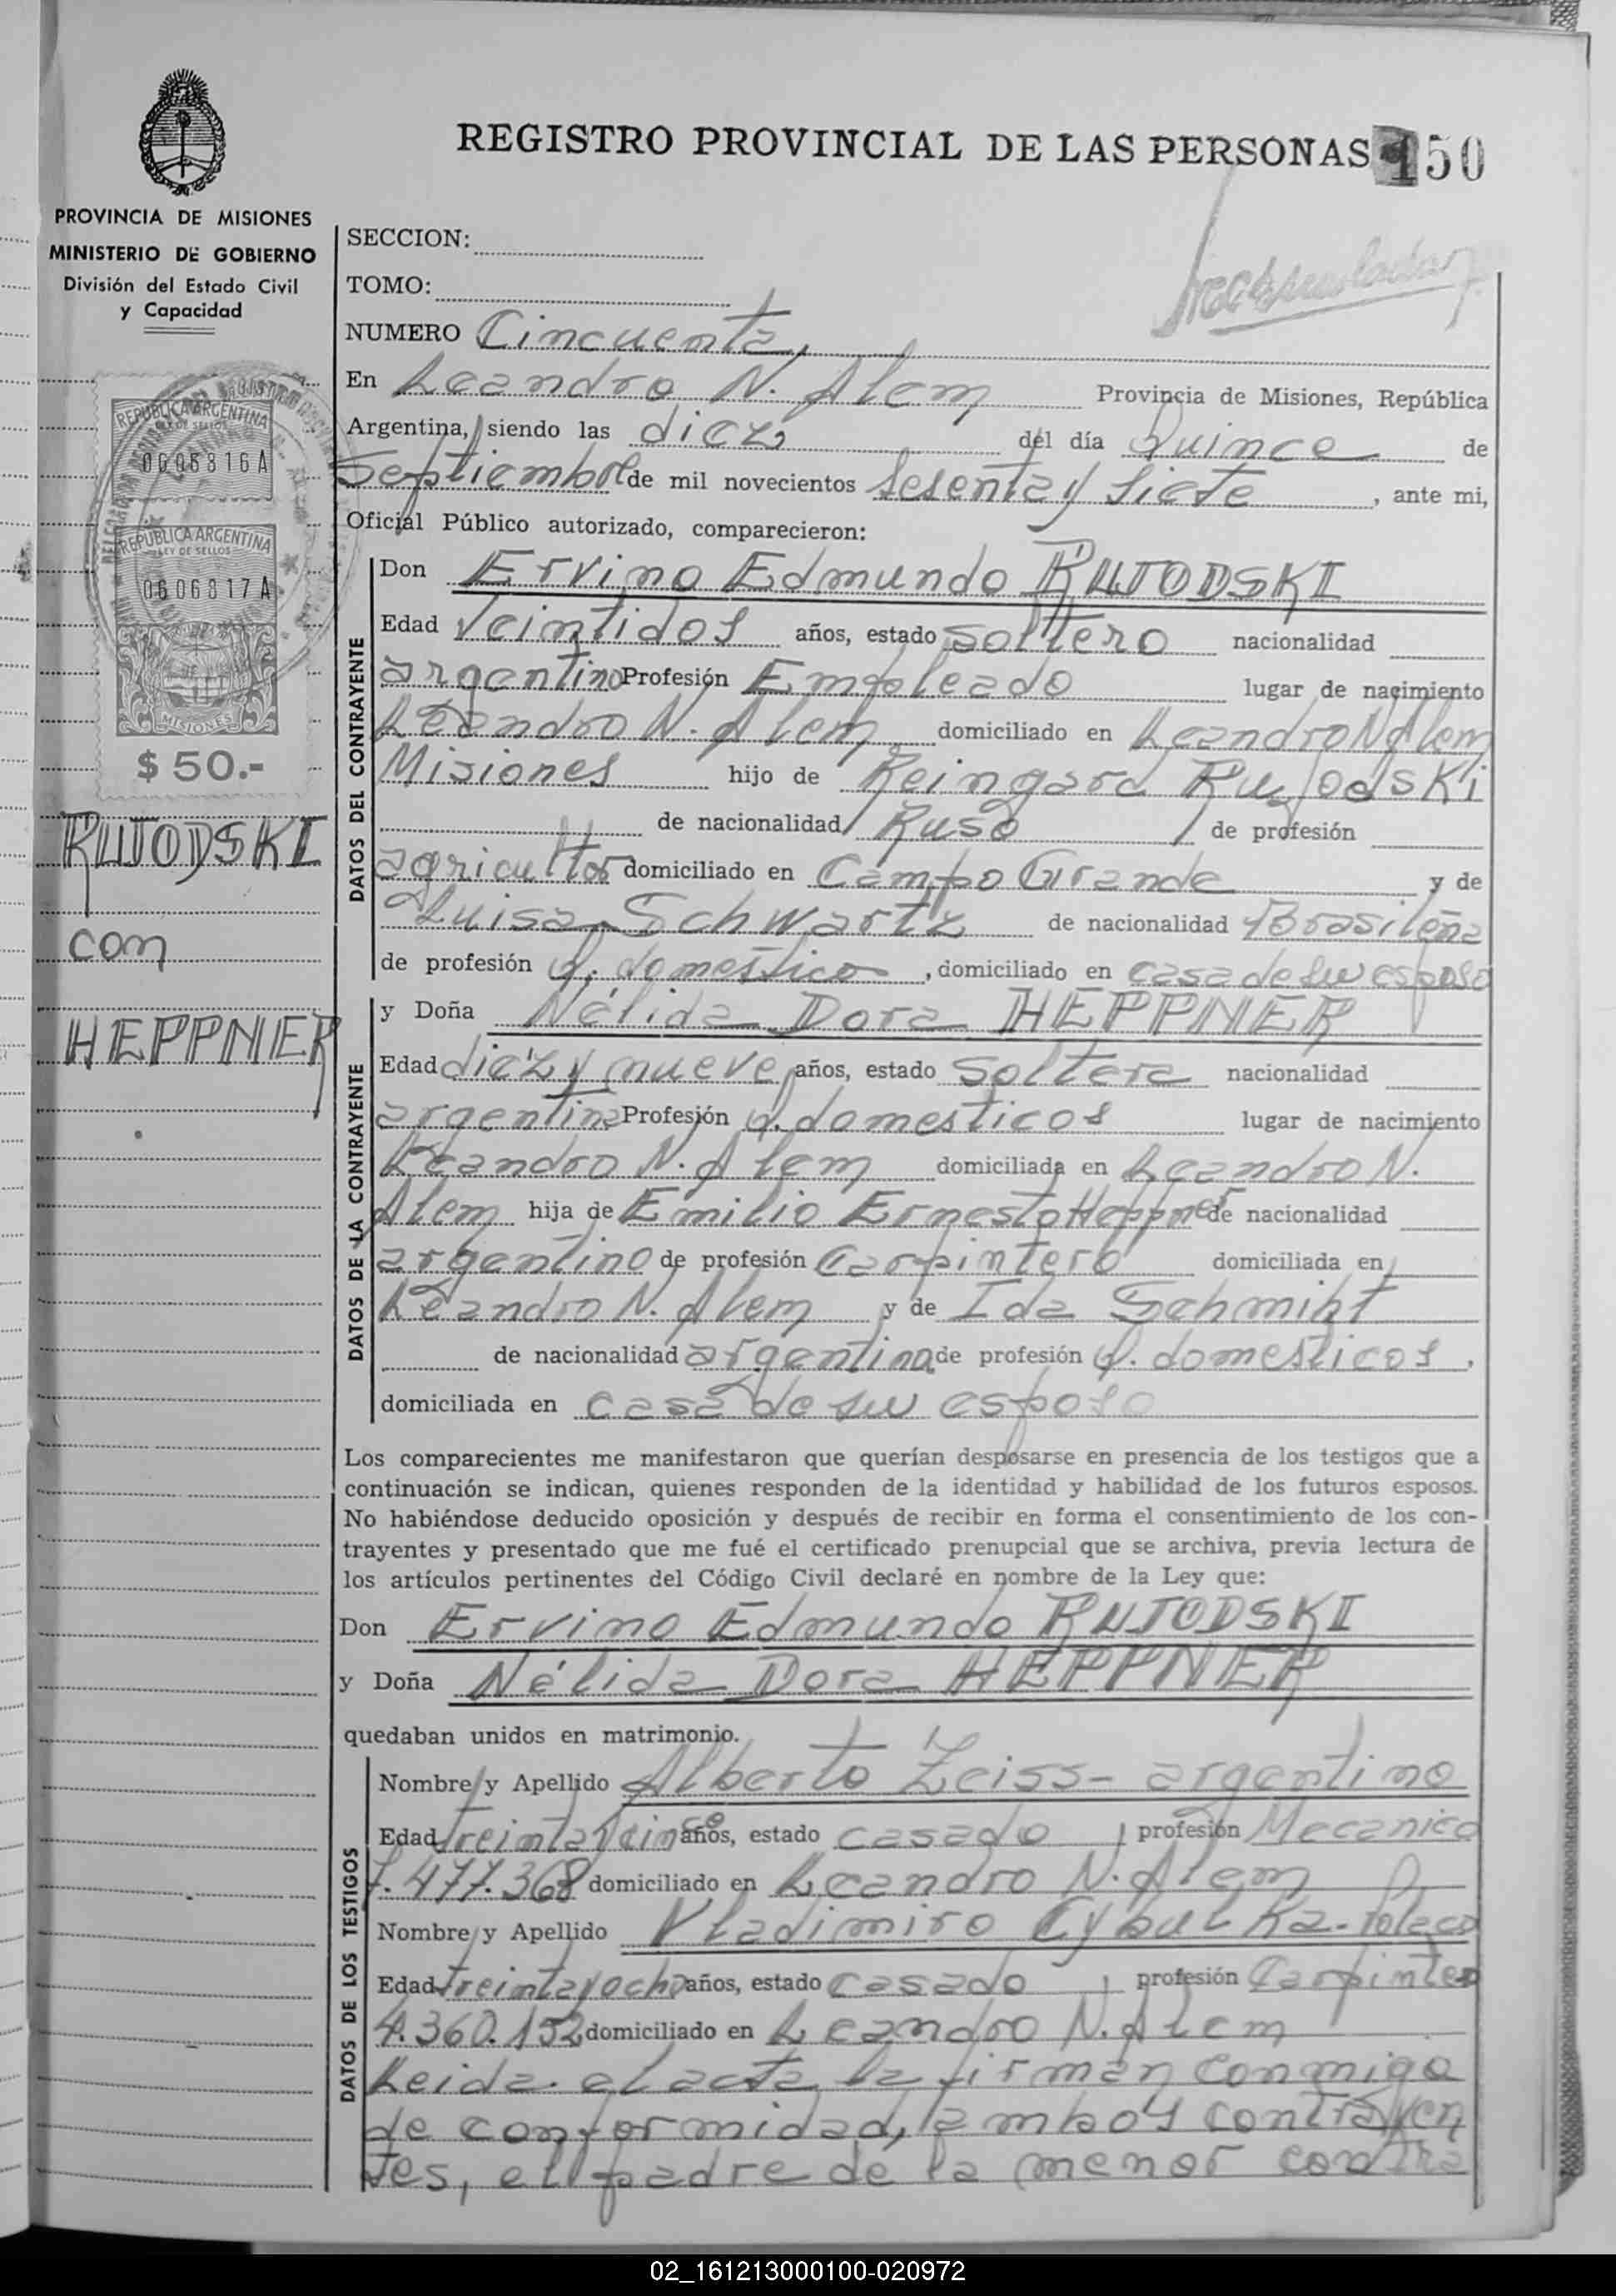 REGISTRO PROVINCIAL DE LAS PERSONAS 150
PROVINCIA DE MISIONES
MINISTERIO DE GOBIERNO
División del Estado Civil
y Capacidad
SECCION:
TOMO:
NUMERO Cincuenta,
En Leandro N. Alem Provincia de Misiones, República
Argentina, siendo las diez del día Quince de
Septiembre de mil novecientos Sesenta y Siete, ante mi,
Oficial Público autorizado, comparecieron:
REPUBLICA ARGENTINA
LEY DE SELLOS
0606816A
REPUBLICA ARGENTINA
LEY DE SELLOS
0606817A
MISIONES
$ 50.-
RUJODSKI
con
HEPPNER
DATOS DEL CONTRAYENTE
Don Ervino Edmundo RUJODSKI
Edad Veintidos años, estado Soltero nacionalidad
argentino Profesión Empleado lugar de nacimiento
Leandro N. Alem domiciliado en Leandro N Alem
Misiones hijo de Reingard Rujodski
de nacionalidad Ruso de profesión
agricultor domiciliado en Campo Grande y de
Luisa Schwartz de nacionalidad Brasileña
de profesión q. domestico, domiciliado en casa de su esposo
DATOS DE LA CONTRAYENTE
y Doña Nélida Dora HEPPNER
Edad diez y nueve años, estado Soltera nacionalidad
argentina Profesión q. domesticos lugar de nacimiento
Leandro N. Alem domiciliada en Leandro N.
Alem hija de Emilio Ernesto Heppner de nacionalidad
argentino de profesión Carpintero domiciliada en
Leandro N. Alem y de Ida Schmiht
de nacionalidad argentina de profesión q. domesticos,
domiciliada en casa de su esposo
Los comparecientes me manifestaron que querían desposarse en presencia de los testigos que a
continuación se indican, quienes responden de la identidad y habilidad de los futuros esposos.
No habiéndose deducido oposición y después de recibir en forma el consentimiento de los con-
trayentes y presentado que me fué el certificado prenupcial que se archiva, previa lectura de
los artículos pertinentes del Código Civil declaré en nombre de la Ley que:
Don Ervino Edmundo RUJODSKI
y Doña Nélida Dora HEPPNER
quedaban unidos en matrimonio.
DATOS DE LOS TESTIGOS
Nombre y Apellido Alberto Zeiss - argentino
Edad treintaycinco años, estado casado profesión Mecanico
7.477.368 domiciliado en Leandro N. Alem
Nombre y Apellido Vladimiro Cybulka - Polaco
Edad treintayocho años, estado casado profesión Carpintero
4.360.152 domiciliado en Leandro N. Alem
Leida el acta la firman conmigo
de conformidad, ambos contrayen
tes, el padre de la menor contra
02_161213000100-020972